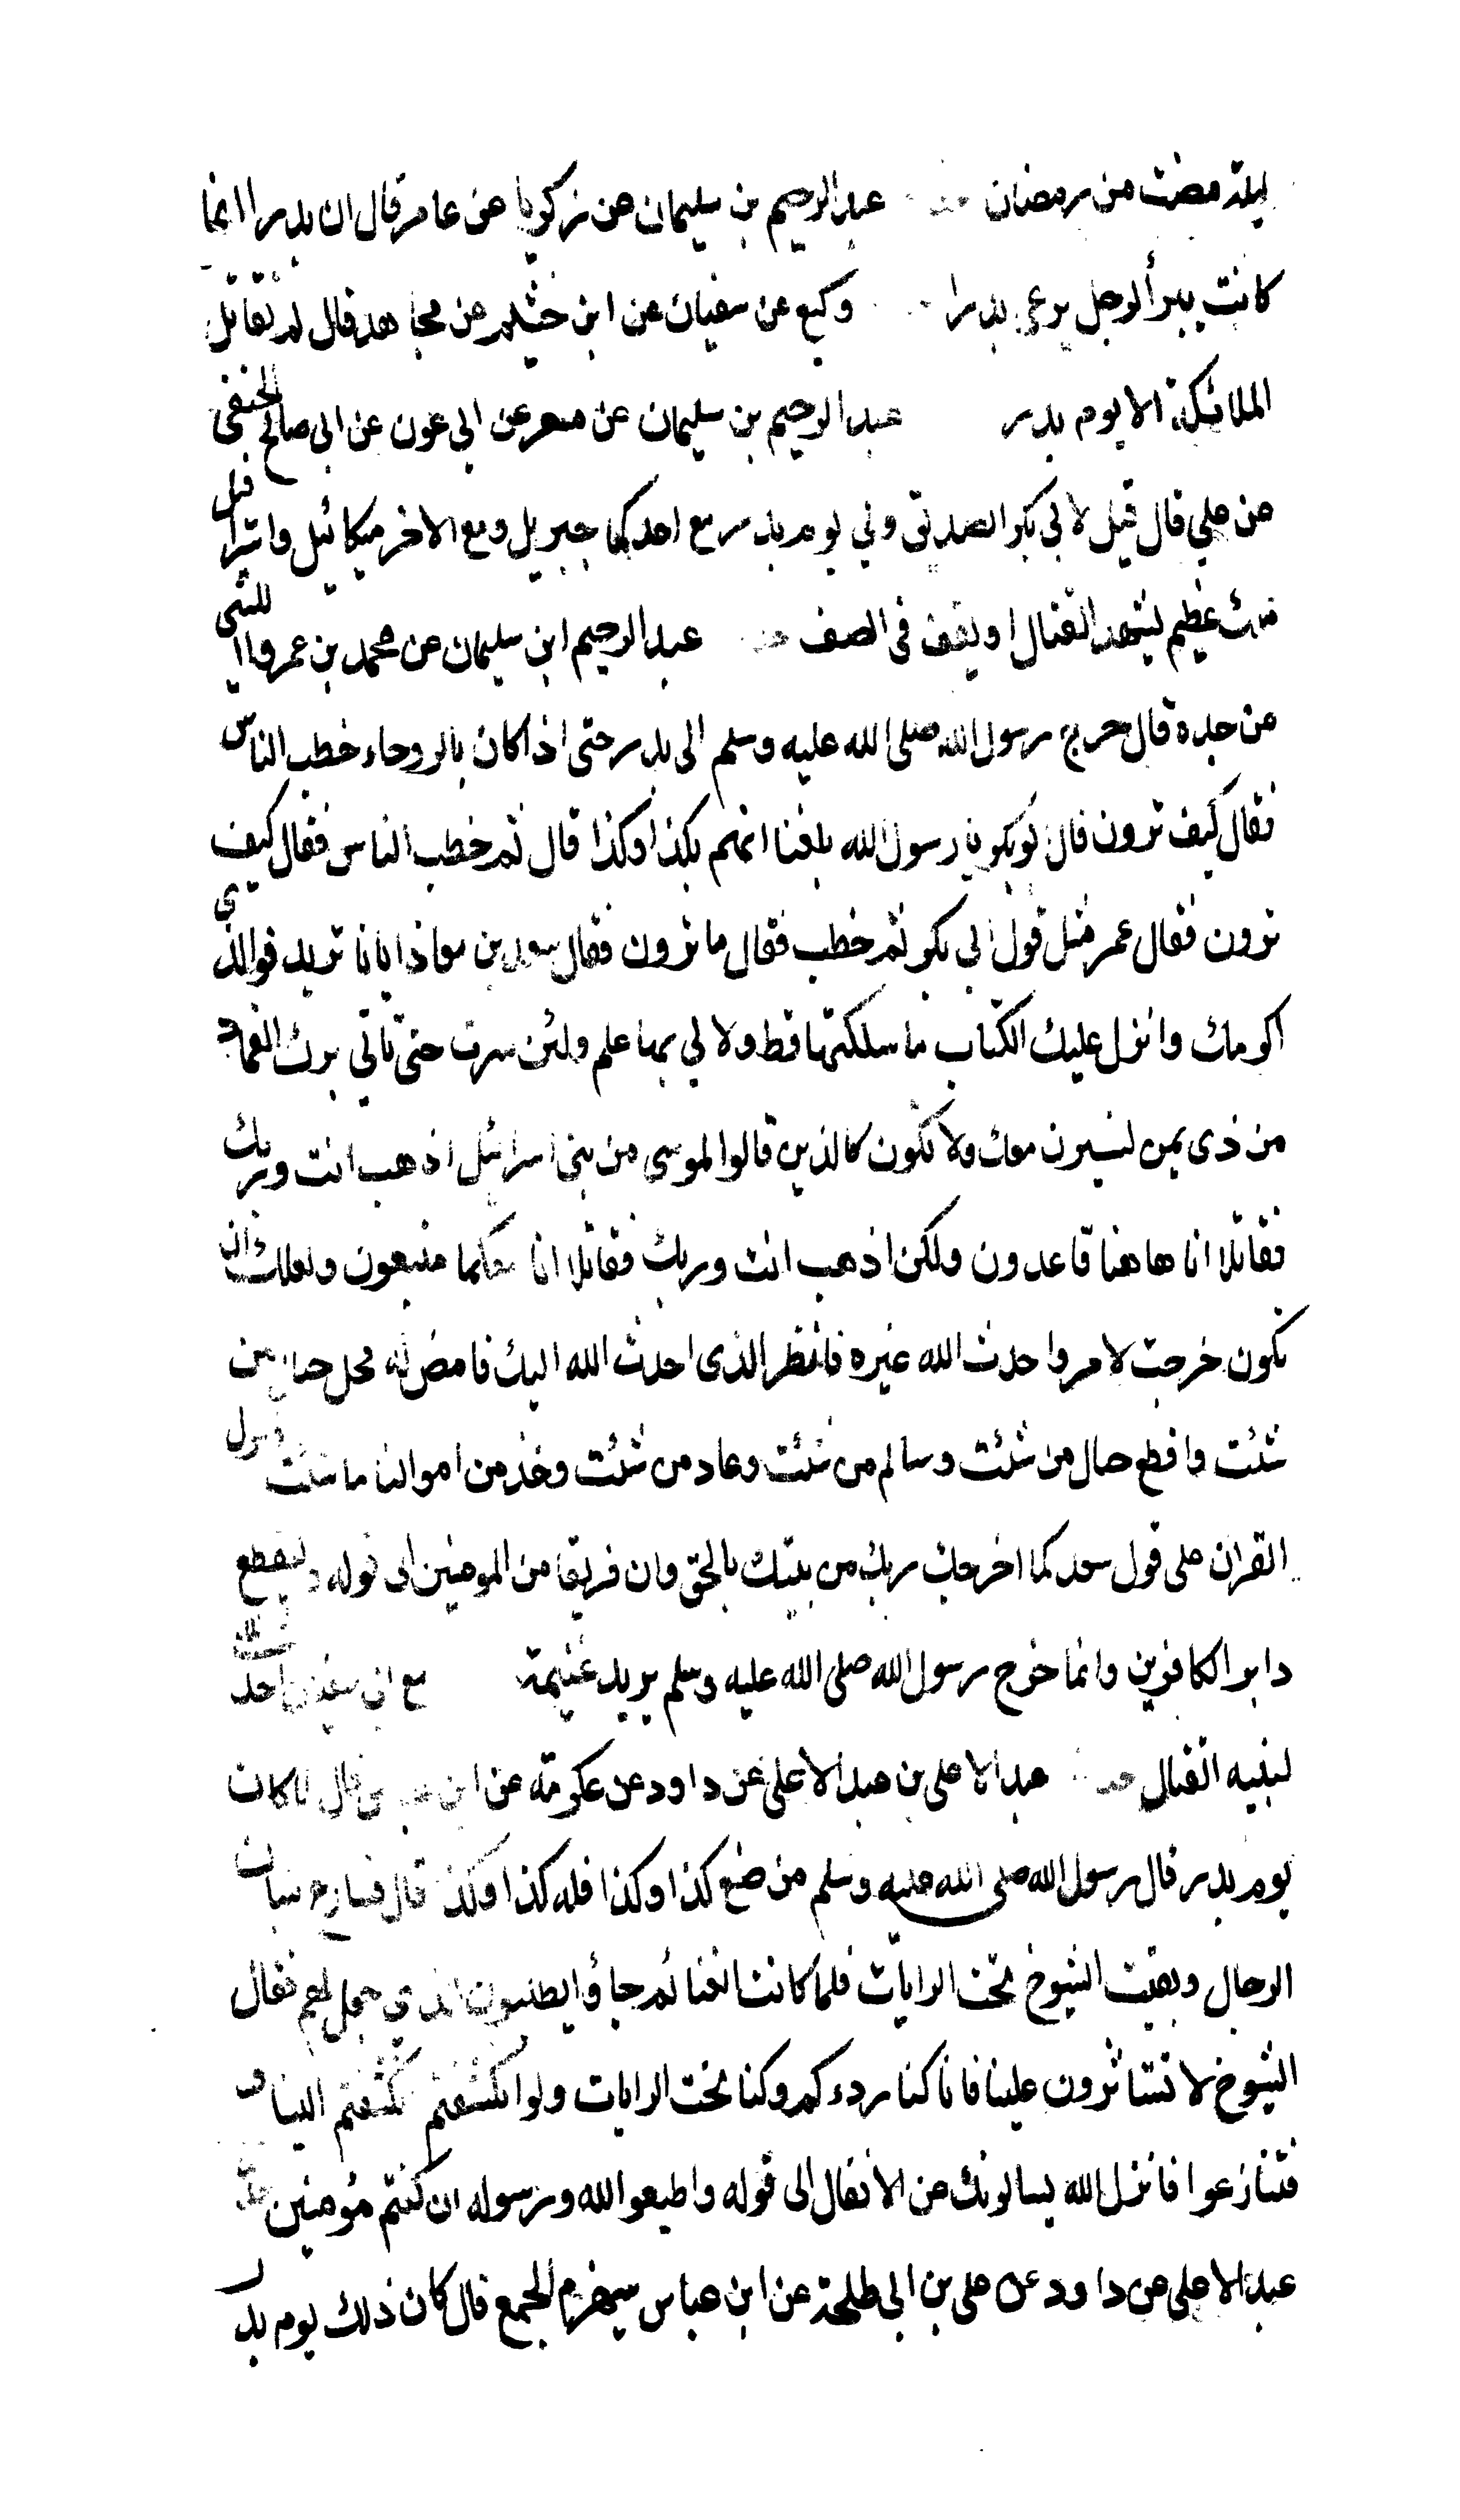 ليلة مضت من رمضان عبد الرحيم بن سليمان عن زكريا عن عامر قال ان بدرا انما
كانت بيرأ لرجل يدعى بدرا وكيع عن سفيان عن ابن خثيم عن مجاهد قال لم تقاتل
الملائكة الا يوم بدر عبد الرحيم بن سليمان عن مسعر عن ابي عون عن ابي صالح الحنفي
عن علي قال قيل لابي بكر الصديق ولي يوم بدر مع احدكما جبريل ومع الاخر ميكائيل واسرافيل
ملك عظيم يشهد القتال او يقف في الصف عبد الرحيم ابن سليمان عن محمد بن عمرو الليثي
عن جده قال خرج رسول الله صلى الله عليه وسلم الى بدر حتى اذا كان بالروحاء خطب الناس
فقال كيف ترون قال ابوبكر يا رسول الله بلغنا انهم بكذا وكذا قال ثم خطب الناس فقال كيف
ترون فقال عمر مثل قول ابي بكر ثم خطب فقال ما ترون فقال سعد بن معاذ ايانا تريد فوالذي
اكرمك وانزل عليك الكتاب ما سلكتها قط ولا لي بها علم ولئن سرت حتى تاتي برك الغماد
من ذي يمن لنسيرن معك ولا نكون كالذين قالوا لموسى من بني اسرائيل اذهب انت وربك
فقاتلا انا هاهنا قاعدون ولكن اذهب انت وربك فقاتلا انا معكما متبعون ولعلك ان
تكون خرجت لامر واحدث الله غيره فانظر الذي احدث الله اليك فامض له فصل حبال من
شئت واقطع حبال من شئت وسالم من شئت وعاد من شئت وخذ من اموالنا ما شئت فنزل
القران على قول سعد كما اخرجك ربك من بيتك بالحق وان فريقا من المومنين الى قوله ويقطع
دابر الكافرين وانما خرج رسول الله صلى الله عليه وسلم يريد غنيمة مع ابي سفيان فاحدث الله
لنبيه القتال عبد الاعلى بن عبد الاعلى عن داود عن عكرمة عن ابن عباس قال لما كان
يوم بدر قال رسول الله صلى الله عليه وسلم من صنع كذا وكذا فله كذا وكذا قال فسارع شبان
الرجال وبقيت الشيوخ تحت الرايات فلما كانت الغنائم جاؤا يطلبون الذي جعل لهم فقال
الشيوخ لا تستاثرون علينا فانا كنا ردءكم وكنا تحت الرايات ولو انكشفتم انكشفتم الينا
فتنازعوا فانزل الله يسالونك عن الانفال الى قوله واطيعوا الله ورسوله ان كنتم مؤمنين
عبد الاعلى عن داود عن علي بن ابي طلحة عن ابن عباس سيهزم الجمع قال كان ذلك يوم بدر